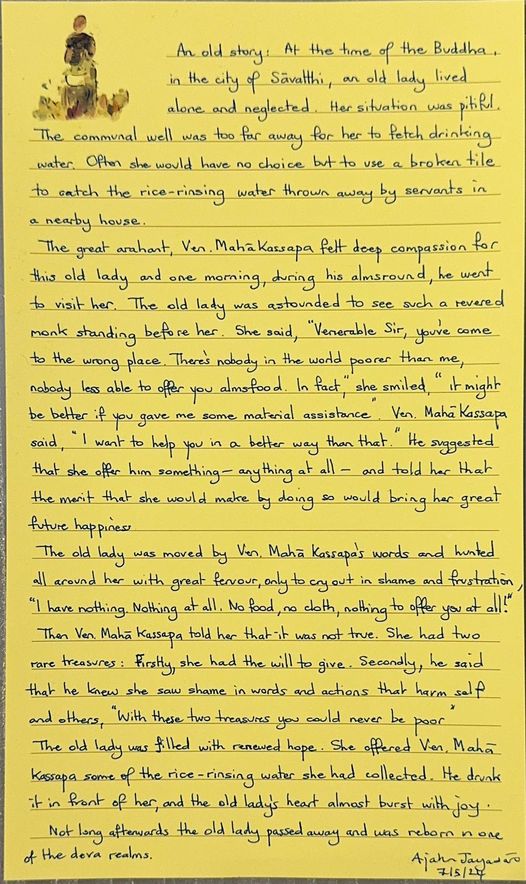 An old story: At the time of the Buddha,
in the city of Sāvatthi, an old lady lived
alone and neglected. Her situation was pitiful.
The communal well was too far away for her to fetch drinking
water. Often she would have no choice but to use a broken tile
to catch the rice-rinsing water thrown away by servants in
a nearby house.
The great arahant, Ven. Mahā Kassapa felt deep compassion for
this old lady and one morning, during his almsround, he went
to visit her. The old lady was astounded to see such a revered
monk standing before her. She said, "Venerable Sir, you've come
to the wrong place. There's nobody in the world poorer than me,
nobody less able to offer you almsfood. In fact," she smiled, "it might
be better if you gave me some material assistance". Ven. Mahā Kassapa
said, "I want to help you in a better way than that." He suggested
that she offer him something – anything at all – and told her that
the merit that she would make by doing so would bring her great
future happiness
The old lady was moved by Ven. Mahā Kassapa's words and hunted
all around her with great fervour, only to cry out in shame and frustration,
"I have nothing. Nothing at all. No food, no cloth, nothing to offer you at all!"
Then Ven. Mahā Kassapa told her that it was not true. She had two
rare treasures: Firstly, she had the will to give. Secondly, he said
that he knew she saw shame in words and actions that harm self
and others, "With these two treasures you could never be poor"
The old lady was filled with renewed hope. She offered Ven. Mahā
Kassapa some of the rice-rinsing water she had collected. He drunk
it in front of her, and the old lady's heart almost burst with joy.
Not long afterwards the old lady passed away and was reborn in one
of the deva realms.
Ajahn Jayasāro
7/5/24